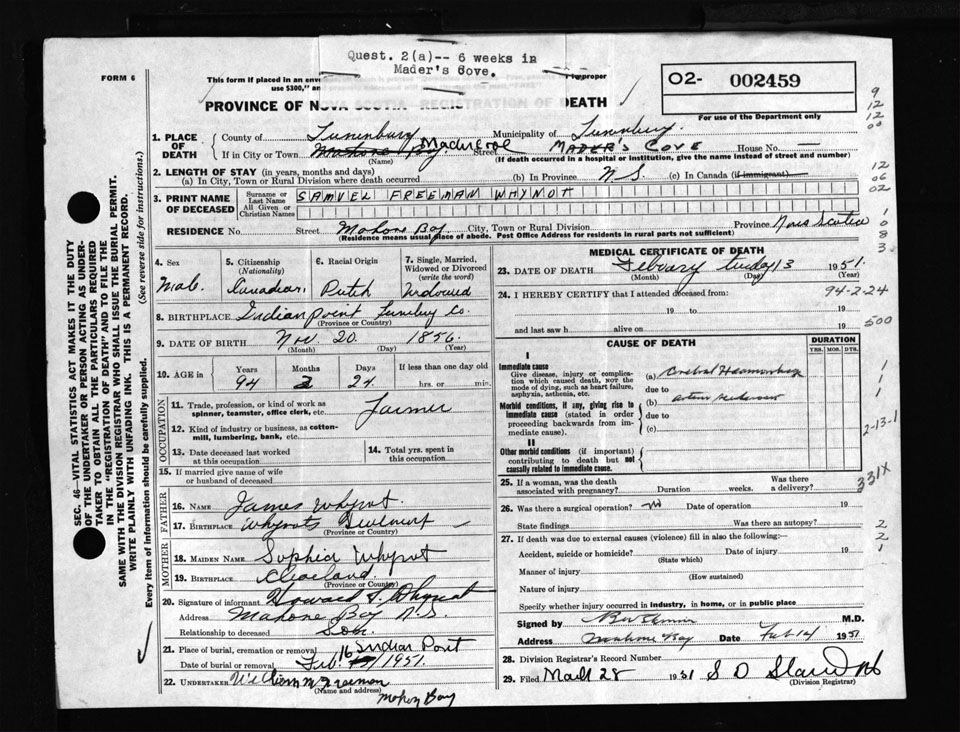 Quest. 2(a)-- 6 weeks in
Mader's Cove.
FORM 6
This form if placed in an enve
use $300," an
improper
O2- 002459
For use of the Department only
PROVINCE OF NOVA SCOTIA REGISTRATION OF DEATH
1. PLACE OF DEATH
County of Lunenburg Municipality of Lunenburg.
If in City or Town Mahone Bay Mader Cove Street MADER'S COVE House No. —
(Name) (If death occurred in a hospital or institution, give the name instead of street and number)
2. LENGTH OF STAY (in years, months and days)
(a) In City, Town or Rural Division where death occurred (b) In Province N.S. (c) In Canada (if immigrant)
3. PRINT NAME OF DECEASED
Surname or Last Name SAMUEL FREEMAN WHYNOT
All Given or Christian Names
RESIDENCE No. Street Mahone Bay City, Town or Rural Division Province Nova Scotia
(Residence means usual place of abode. Post Office Address for residents in rural parts not sufficient)
4. Sex
Male
5. Citizenship
(Nationality)
Canadian
6. Racial Origin
Dutch
7. Single, Married, Widowed or Divorced
(write the word)
Widowed
8. BIRTHPLACE Indian point Lunenburg Co.
(Province or Country)
9. DATE OF BIRTH Nov. 20. 1856.
(Month) (Day) (Year)
10. AGE in Years Months Days If less than one day old
94 2 24 hrs. or min.
OCCUPATION
11. Trade, profession, or kind of work as spinner, teamster, office clerk, etc. Farmer
12. Kind of industry or business, as cotton-mill, lumbering, bank, etc.
13. Date deceased last worked at this occupation
14. Total yrs. spent in this occupation
15. If married give name of wife or husband of deceased
FATHER
16. Name James Whynot.
17. Birthplace Whynots
MOTHER
18. Maiden Name Sophia Whynot
19. Birthplace Cleveland.
(Province or Country)
20. Signature of informant Howard S. Whynot
Address Mahone Bay N.S.
Relationship to deceased Son.
21. Place of burial, cremation or removal Indian Point
Date of burial or removal Feb. 16 1951.
22. UNDERTAKER William M Freeman
(Name and address)
Mahone Bay
MEDICAL CERTIFICATE OF DEATH
23. DATE OF DEATH Febuary tusday 13 1951.
(Month) (Day) (Year)
24. I HEREBY CERTIFY that I attended deceased from:
19 to 19
and last saw h alive on 19
CAUSE OF DEATH
DURATION
YRS. MOS. DYS.
I
Immediate cause
Give disease, injury or complication which caused death, not the mode of dying, such as heart failure, asphyxia, asthenia, etc.
(a) Cerebral Haemorrhage
due to
Morbid conditions, if any, giving rise to immediate cause (stated in order proceeding backwards from immediate cause).
(b)
due to
(c)
II
Other morbid conditions (if important) contributing to death but not causally related to immediate cause.
25. If a woman, was the death associated with pregnancy? Duration weeks. Was there a delivery?
26. Was there a surgical operation? no Date of operation 19
State findings Was there an autopsy?
27. If death was due to external causes (violence) fill in also the following:
Accident, suicide or homicide? Date of injury 19
(State which)
Manner of injury
(How sustained)
Nature of injury
Specify whether injury occurred in industry, in home, or in public place
Signed by M.D.
Address Mahone Bay Date Feb 14 1951
28. Division Registrar's Record Number
29. Filed March 28 1951 S D
(Division Registrar)
SEC. 46—VITAL STATISTICS ACT MAKES IT THE DUTY
OF THE UNDERTAKER OR PERSON ACTING AS UNDER-
TAKER TO OBTAIN ALL THE PARTICULARS REQUIRED
IN THE "REGISTRATION OF DEATH" AND TO FILE THE
SAME WITH THE DIVISION REGISTRAR WHO SHALL ISSUE THE BURIAL PERMIT.
WRITE PLAINLY WITH UNFADING INK. THIS IS A PERMANENT RECORD.
Every item of information should be carefully supplied. (See reverse side for instructions.)
9
12
12
00
12
06
02
1
0
8
3
94-2-24
500
1
1
1
2-13-1
331X
2
2
1